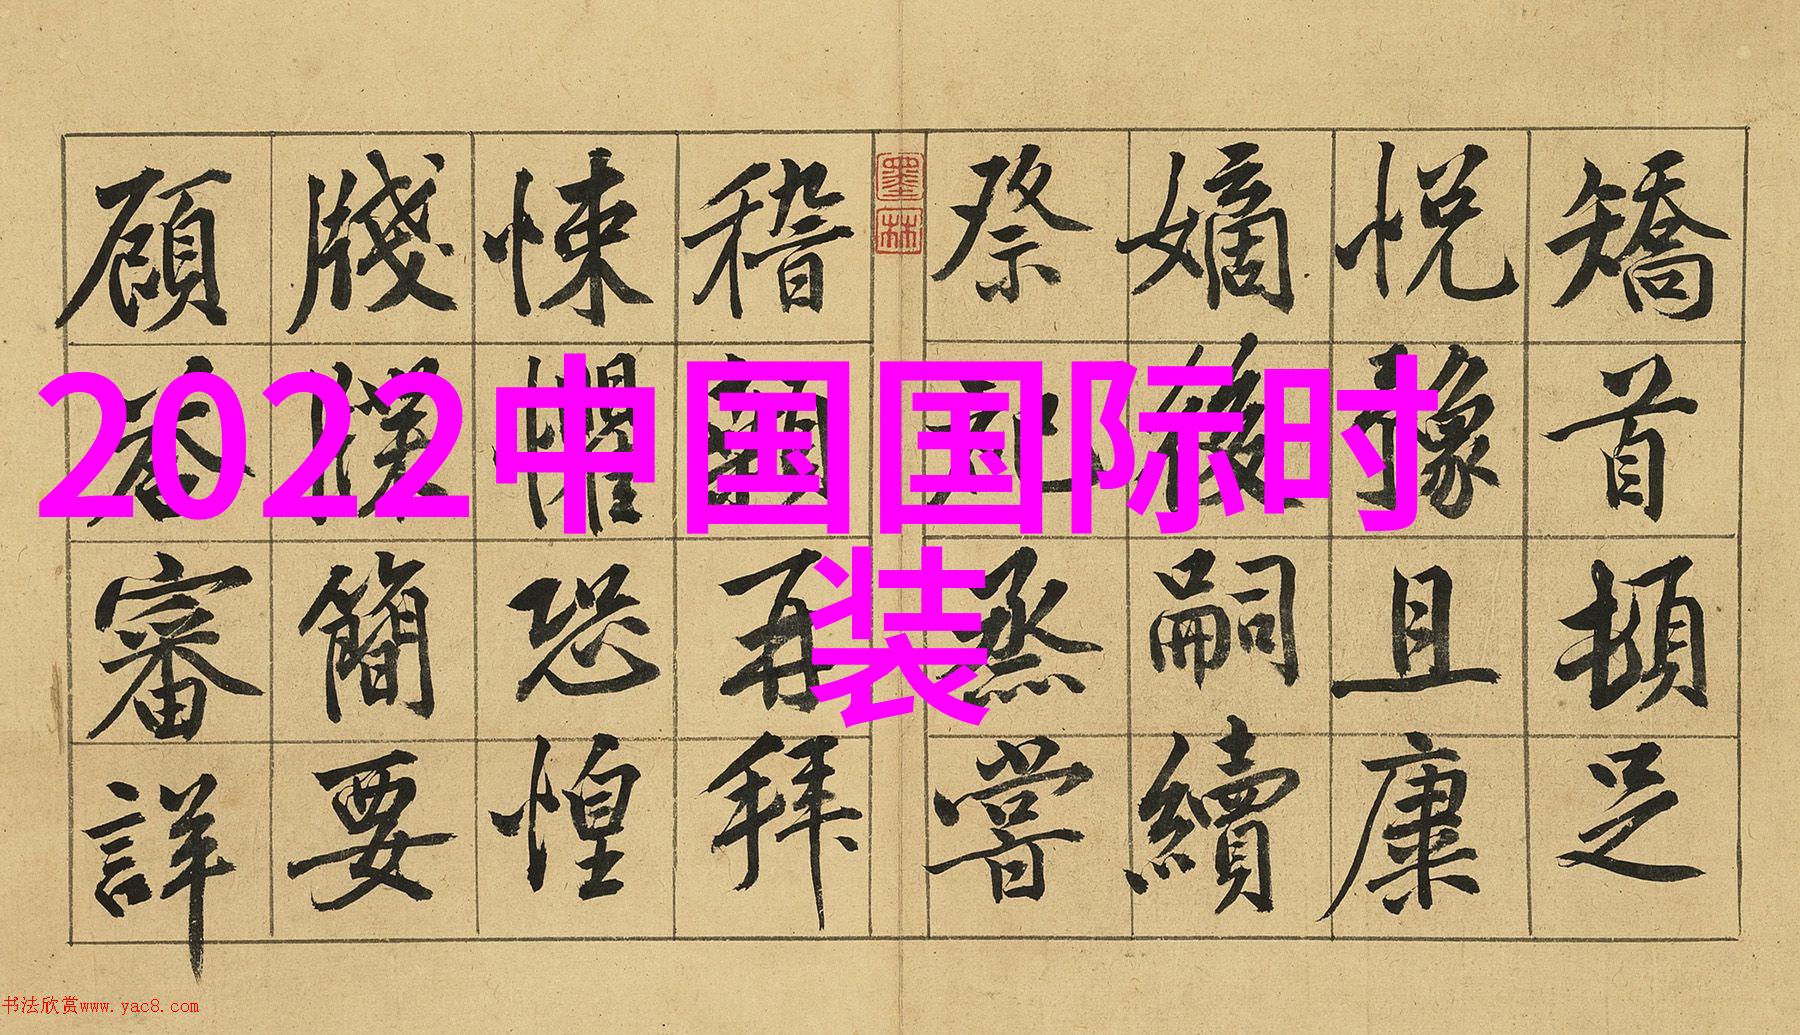 2022中国国际时
装
矯首頓足
悅豫且康
嫡後嗣續
祭祀烝嘗
墨林
稽顙再拜
悚懼恐惶
牋牒簡要
顧答審詳
书法欣赏www.yac8.com